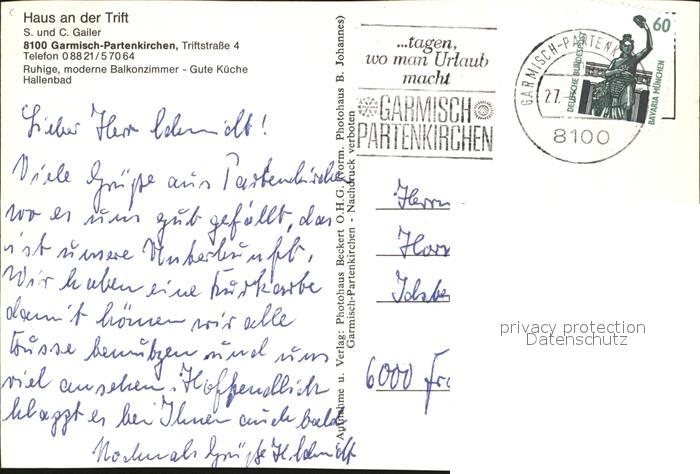 Haus an der Trift
S. und C. Gailer
8100 Garmisch-Partenkirchen, Triftstraße 4
Telefon 0 88 21 / 5 70 64
Ruhige, moderne Balkonzimmer - Gute Küche
Hallenbad
Lieber Herr Schmidt!
Viele Grüße aus Partenkirchen
wo es uns gut gefällt, das
ist unsere Unterkunft.
Wir haben eine Kurkarte
damit können wir alle
Busse benutzen und uns
viel ansehen. Hoffendlich
klappt es bei Ihnen auch bald
Nochmals Grüße H. Schmidt
Aufnahme u. Verlag: Photohaus Beckert O.H.G. (vorm. Photohaus B. Johannes)
Garmisch-Partenkirchen - Nachdruck verboten
...tagen,
wo man Urlaub
macht
GARMISCH
PARTENKIRCHEN
GARMISCH-PARTENK
27.
8100
60
DEUTSCHE BUNDESPOST
BAVARIA MÜNCHEN
Herrn
Hors
Idste
6000 Fra
privacy protection
Datenschutz